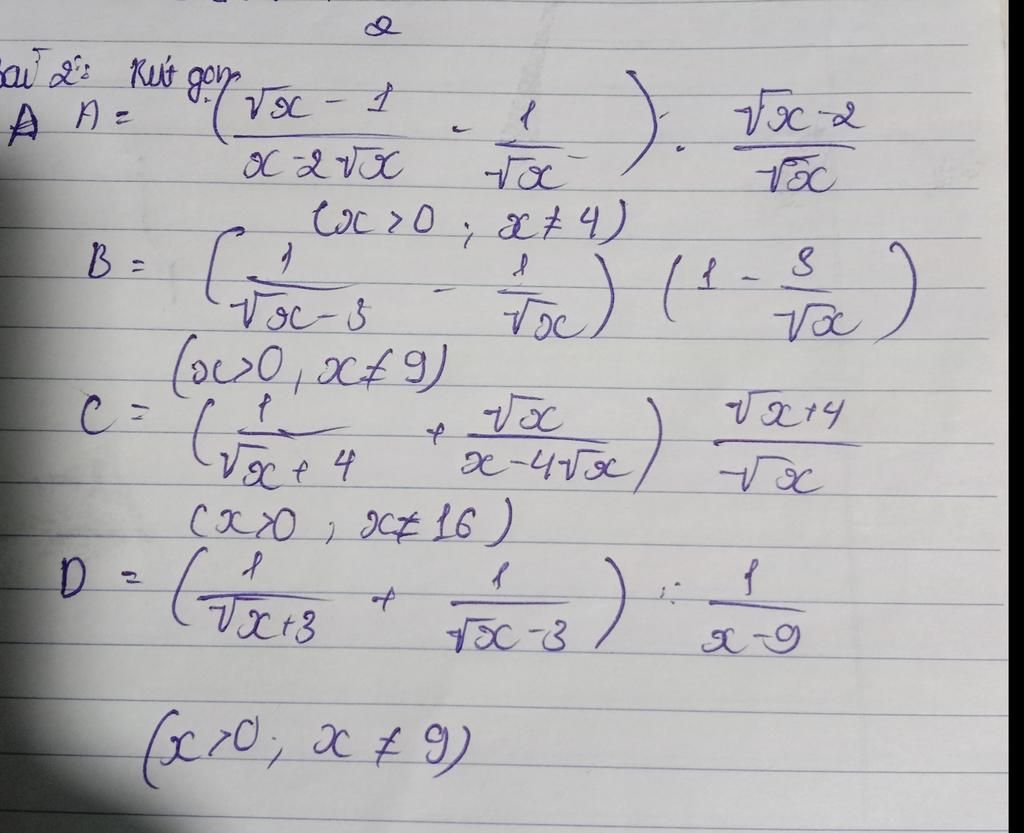 2
Bài 2: Rút gọn
A A = ( (√x - 1)/(x - 2√x) - 1/√x ) . (√x - 2)/√x
(x > 0 ; x ≠ 4)
B = ( 1/(√x - 3) - 1/√x ) ( 1 - 3/√x )
(x > 0, x ≠ 9)
C = ( 1/(√x + 4) + √x/(x - 4√x) ) (√x + 4)/√x
(x > 0 ; x ≠ 16)
D = ( 1/(√x + 3) + 1/(√x - 3) ) : 1/(x - 9)
(x > 0 ; x ≠ 9)